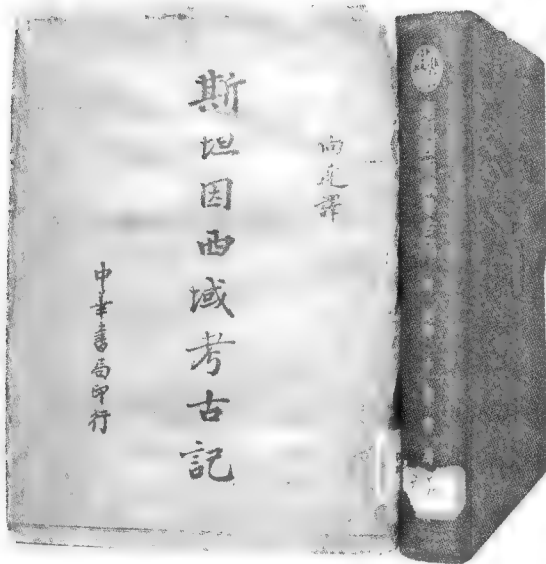 向达譯
斯坦因西域考古記
中華書局印行